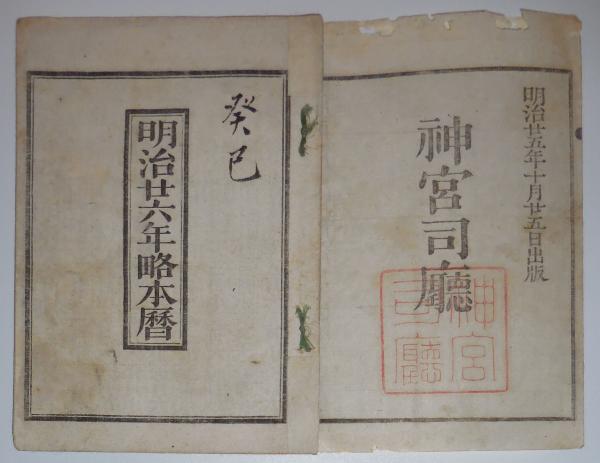 明治廿五年十月廿五日出版
神宮司廳
神宮
司廳
癸巳
明治廿六年略本曆